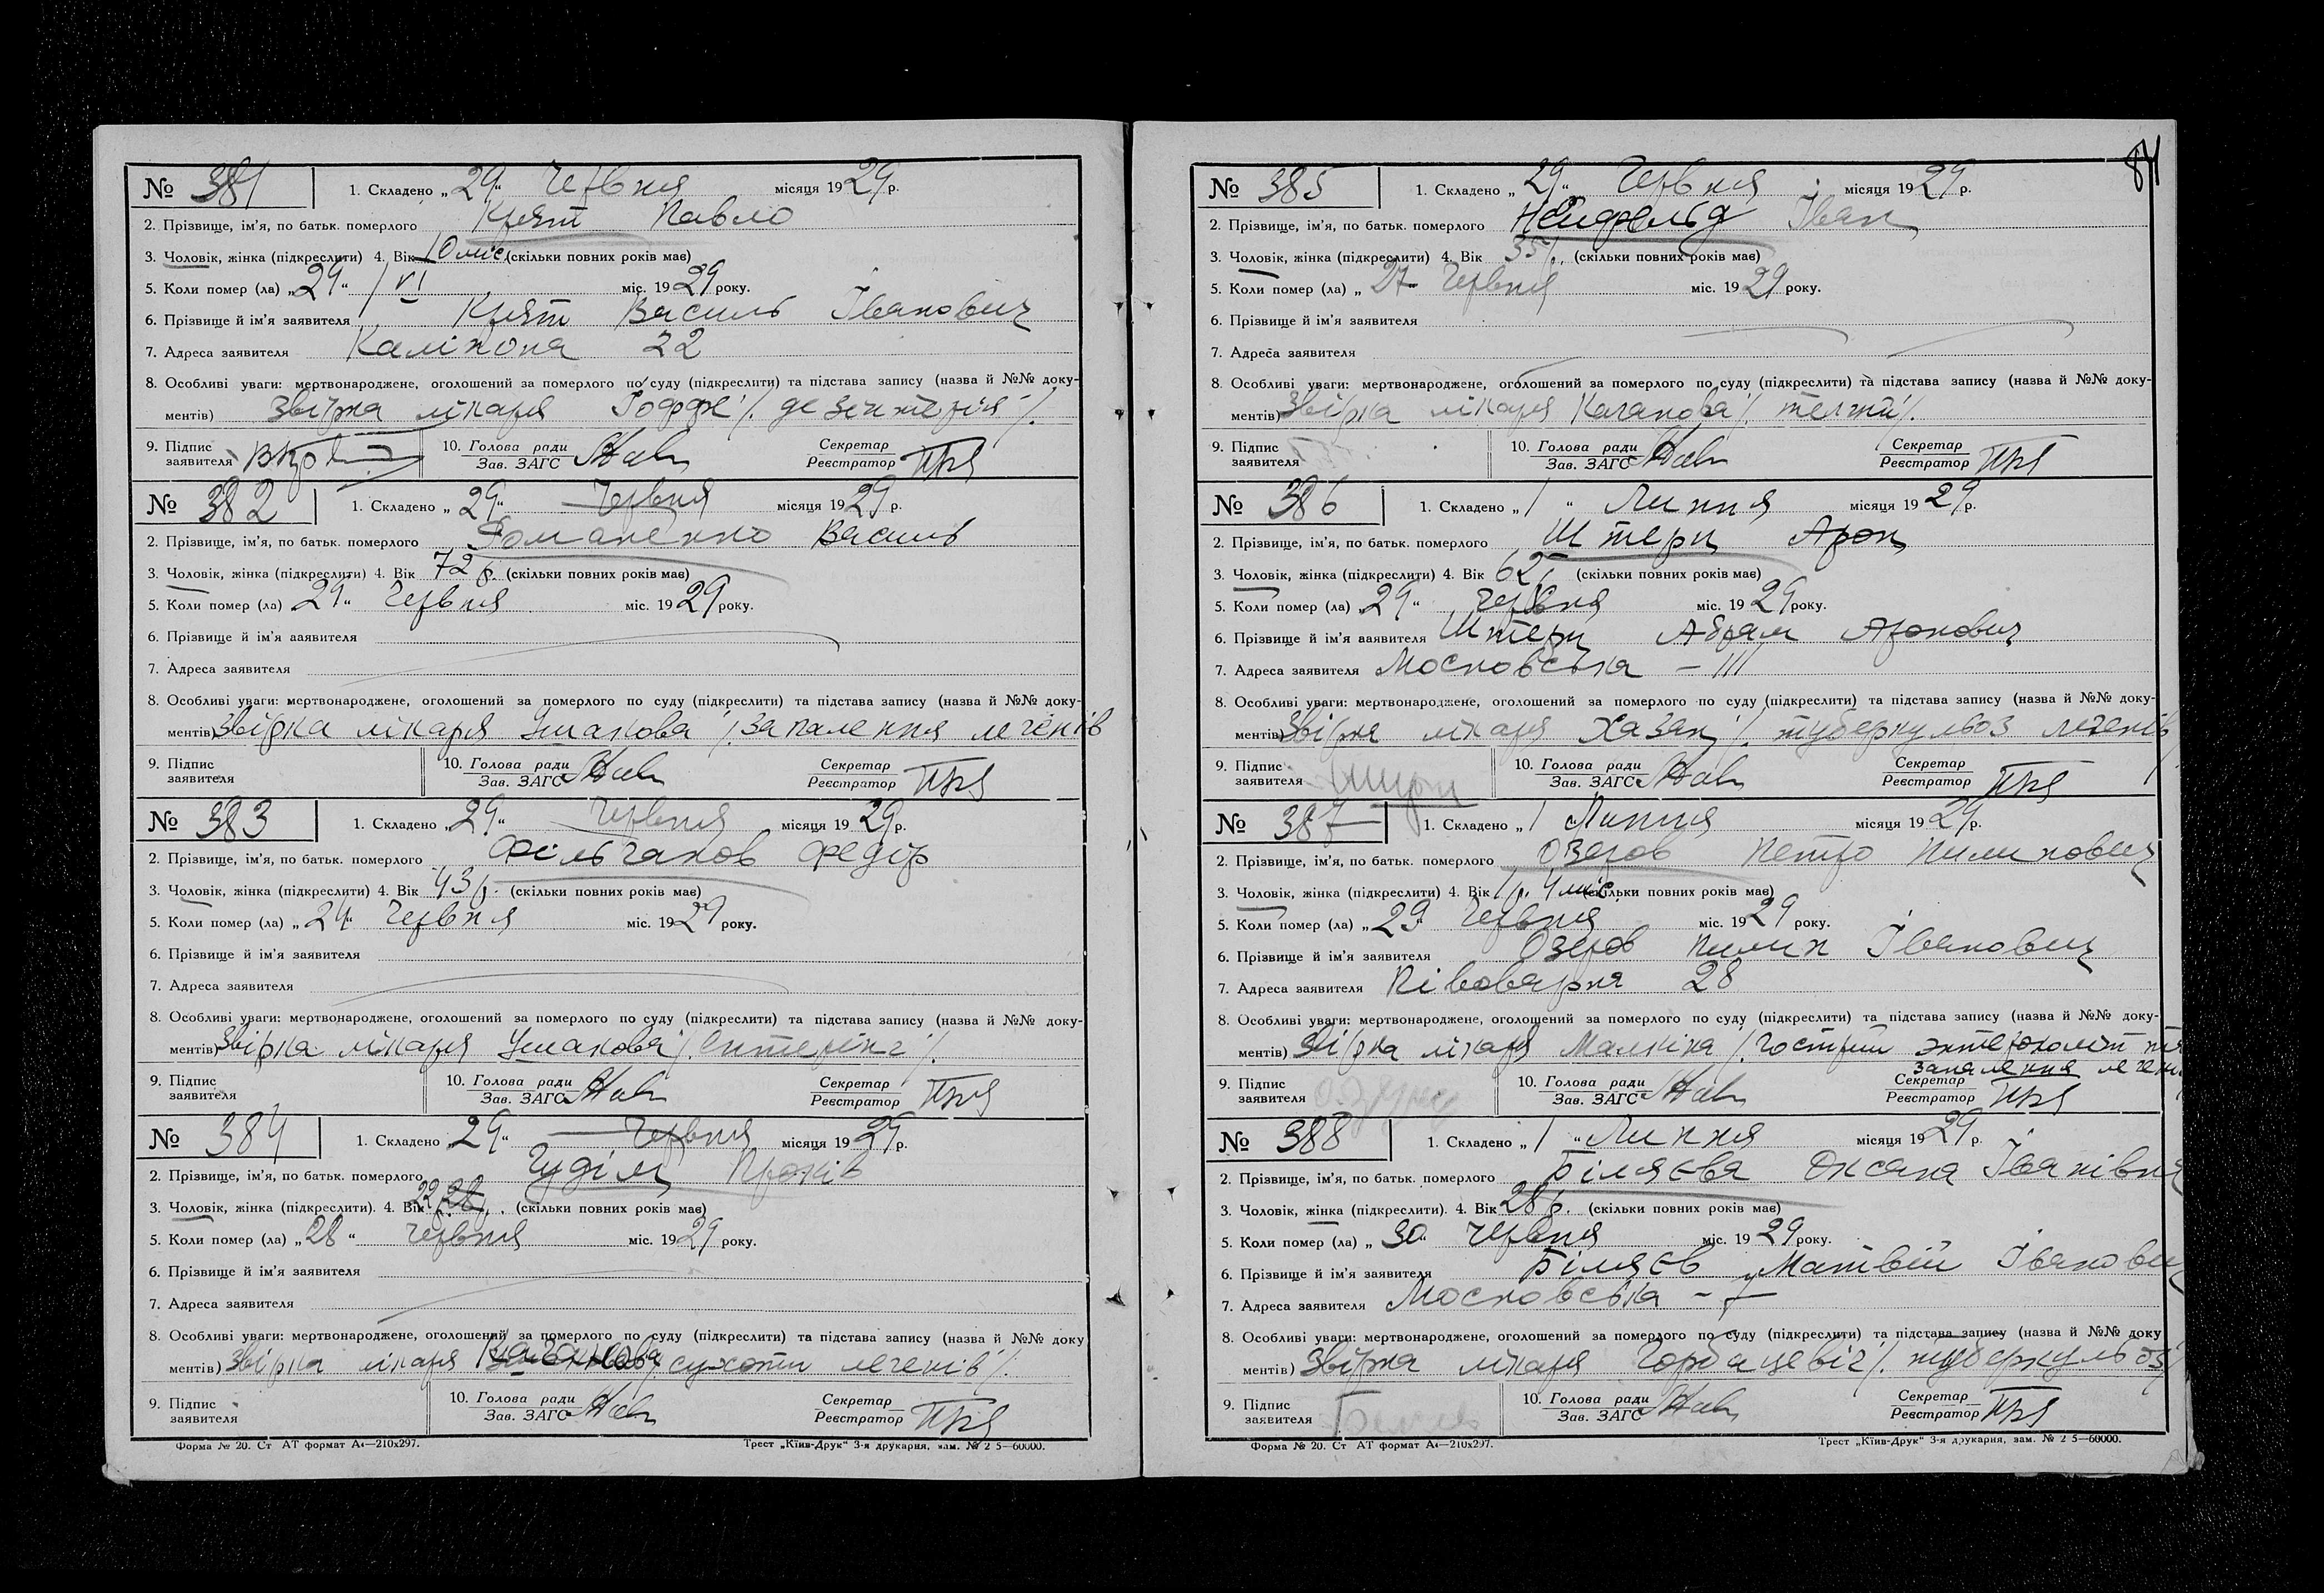 84
№ 381 1. Складено „29“ Червня місяця 1929 р.
2. Прізвище, ім'я, по батьк. померлого Крят Павло
3. Чоловік, жінка (підкреслити) 4. Вік 10 міс. (скільки повних років має)
5. Коли помер (ла) „29“ VI міс. 1929 року.
6. Прізвище й ім'я заявителя Крят Василь Іванович
7. Адреса заявителя 22
8. Особливі уваги: мертвонароджене, оголошений за померлого по суду (підкреслити) та підстава запису (назва й №№ доку-
ментів) Звірка лікаря Іоффе /. дезінтерія /.
9. Підпис заявителя 10. Голова ради Зав. ЗАГС Секретар Реєстратор
№ 382 1. Складено „29“ Червня місяця 1929 р.
2. Прізвище, ім'я, по батьк. померлого Романенко Василь
3. Чоловік, жінка (підкреслити) 4. Вік 72 р. (скільки повних років має)
5. Коли помер (ла) 29“ Червня міс. 1929 року.
6. Прізвище й ім'я заявителя
7. Адреса заявителя
8. Особливі уваги: мертвонароджене, оголошений за померлого по суду (підкреслити) та підстава запису (назва й №№ доку-
ментів) Звірка лікаря Ушакова /. запалення легенів
9. Підпис заявителя 10. Голова ради Зав. ЗАГС Секретар Реєстратор
№ 383 1. Складено „29“ Червня місяця 1929 р.
2. Прізвище, ім'я, по батьк. померлого Фільчаков Федір
3. Чоловік, жінка (підкреслити) 4. Вік 43 р. (скільки повних років має)
5. Коли помер (ла) „24“ Червня міс. 1929 року.
6. Прізвище й ім'я заявителя
7. Адреса заявителя
8. Особливі уваги: мертвонароджене, оголошений за померлого по суду (підкреслити) та підстава запису (назва й №№ доку-
ментів) Звірка лікаря Ушакова /.
9. Підпис заявителя 10. Голова ради Зав. ЗАГС Секретар Реєстратор
№ 384 1. Складено „29“ Червня місяця 1929 р.
2. Прізвище, ім'я, по батьк. померлого Гудім
3. Чоловік, жінка (підкреслити). 4. Вік 22 28 . (скільки повних років має)
5. Коли помер (ла) „28“ Червня міс. 1929 року.
6. Прізвище й ім'я заявителя
7. Адреса заявителя
8. Особливі уваги: мертвонароджене, оголошений за померлого по суду (підкреслити) та підстава запису (назва й №№ доку
ментів) Звірка лікаря Каганова сухоти легенів /.
9. Підпис заявителя 10. Голова ради Зав. ЗАГС Секретар Реєстратор
Форма № 20. Ст АТ формат А4—210х297. Трест „Київ-Друк“ 3-я друкарня, зам. № 2 5—60000.
№ 385 1. Складено „29“ Червня місяця 1929 р.
2. Прізвище, ім'я, по батьк. померлого Нейфельд Іван
3. Чоловік, жінка (підкреслити) 4. Вік 35 (скільки повних років має)
5. Коли помер (ла) „27 Червня міс. 1929 року.
6. Прізвище й ім'я заявителя
7. Адреса заявителя
8. Особливі уваги: мертвонароджене, оголошений за померлого по суду (підкреслити) та підстава запису (назва й №№ доку-
ментів) Звірка лікаря Каганова /.
9. Підпис заявителя 10. Голова ради Зав. ЗАГС Секретар Реєстратор
№ 386 1. Складено „1“ Липня місяця 1929 р.
2. Прізвище, ім'я, по батьк. померлого Штерн Арон
3. Чоловік, жінка (підкреслити) 4. Вік 62 (скільки повних років має)
5. Коли помер (ла) „29“ Червня міс. 1929 року.
6. Прізвище й ім'я заявителя Штерн Абрам Аронович
7. Адреса заявителя Московська – 111
8. Особливі уваги: мертвонароджене, оголошений за померлого по суду (підкреслити) та підстава запису (назва й №№ доку-
ментів) Звірка лікаря Хазан /. туберкульоз легенів
9. Підпис заявителя 10. Голова ради Зав. ЗАГС Секретар Реєстратор
№ 387 1. Складено „1 Липня місяця 1929 р.
2. Прізвище, ім'я, по батьк. померлого Озеров Петро Пилипович
3. Чоловік, жінка (підкреслити) 4. Вік 1 р. 4 міс. (скільки повних років має)
5. Коли помер (ла) „29 Червня міс. 1929 року.
6. Прізвище й ім'я заявителя Озеров Пилип Іванович
7. Адреса заявителя Півоварня 28
8. Особливі уваги: мертвонароджене, оголошений за померлого по суду (підкреслити) та підстава запису (назва й №№ доку-
ментів) Звірка лікаря Малкіна /. Гострий энтероколіт
запалення леген.
9. Підпис заявителя 10. Голова ради Зав. ЗАГС Секретар Реєстратор
№ 388 1. Складено „1“ Липня місяця 1929 р.
2. Прізвище, ім'я, по батьк. померлого Біляєва Оксана Іванівна
3. Чоловік, жінка (підкреслити). 4. Вік 28 р. (скільки повних років має)
5. Коли помер (ла) „30 Червня міс. 1929 року.
6. Прізвище й ім'я заявителя Біляєв Матвій Іванович
7. Адреса заявителя Московська – 7
8. Особливі уваги: мертвонароджене, оголошений за померлого по суду (підкреслити) та підстава запису (назва й №№ доку
ментів) Звірка лікаря Горбацевіч /. туберкульоз
9. Підпис заявителя 10. Голова ради Зав. ЗАГС Секретар Реєстратор
Форма № 20. Ст АТ формат А4—210х297. Трест „Київ-Друк“ 3-я друкарня, зам. № 2 5—60000.